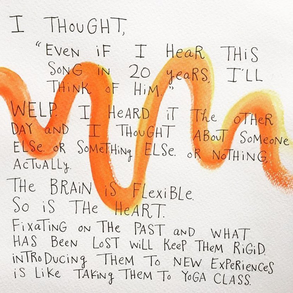 I THOUGHT,
"EVEN IF I HEAR THIS
SONG IN 20 YEARS, I'LL
THINK OF HIM"
WELP I HEARD IT THE OTHER
DAY AND I THOUGHT ABOUT SOMEONE
ELSE OR SOMETHING ELSE. OR NOTHING,
ACTUALLY.
THE BRAIN IS FLEXIBLE.
SO IS THE HEART.
FIXATING ON THE PAST AND WHAT
HAS BEEN LOST WILL KEEP THEM RIGID
INTRODUCING THEM TO NEW EXPERIENCES
IS LIKE TAKING THEM TO YOGA CLASS.